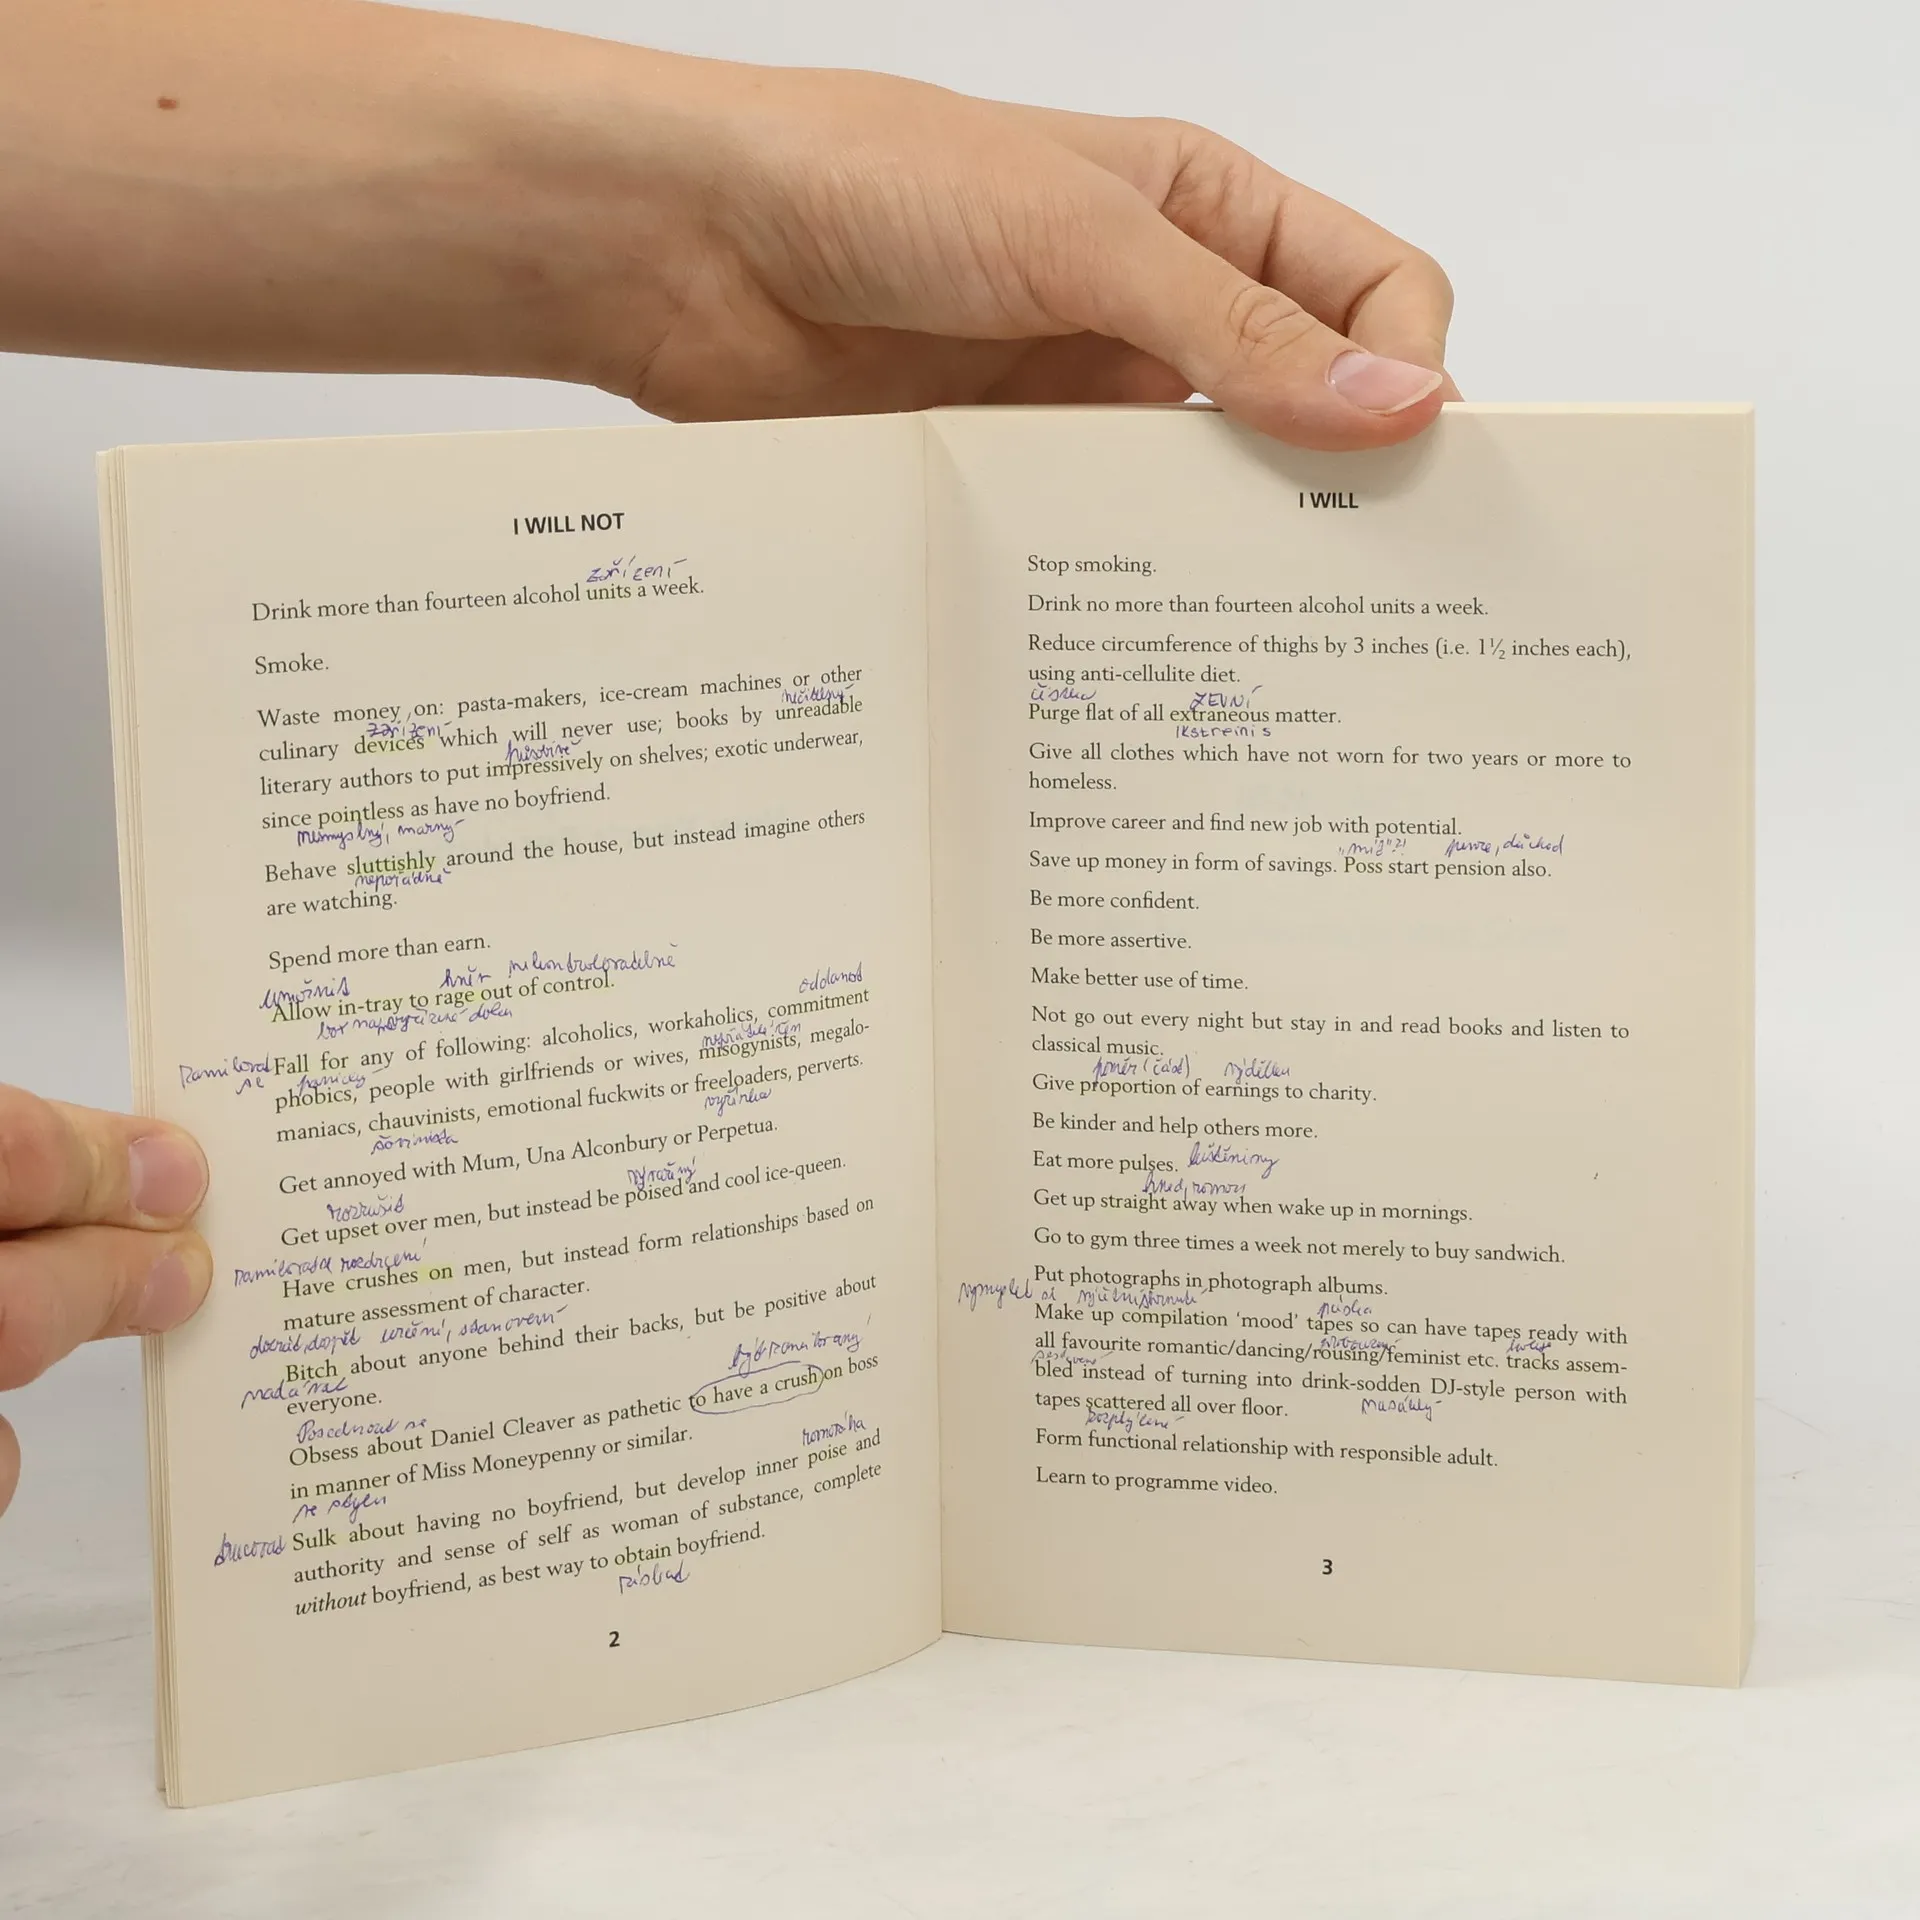 I WILL NOT
zařízení
Drink more than fourteen alcohol units a week.
Smoke.
Waste money on: pasta-makers, ice-cream machines or other
zařízení nečitelný
culinary devices which will never use; books by unreadable
působivě
literary authors to put impressively on shelves; exotic underwear,
since pointless as have no boyfriend.
nesmyslný, marný
Behave sluttishly around the house, but instead imagine others
nepořádně
are watching.
Spend more than earn.
umožnit hněv nekontrolovatelně
Allow in-tray to rage out of control.
box na
oddanost
Fall for any of following: alcoholics, workaholics, commitment
zamilovat se
phobics, people with girlfriends or wives, misogynists, megalo-
maniacs, chauvinists, emotional fuckwits or freeloaders, perverts.
šovinista vyžírka
Get annoyed with Mum, Una Alconbury or Perpetua.
rozrušit
Get upset over men, but instead be poised and cool ice-queen.
Have crushes on men, but instead form relationships based on
mature assessment of character.
určení, stanovení
Bitch about anyone behind their backs, but be positive about
nadávat
everyone.
být zamilovaný
Posednout se
Obsess about Daniel Cleaver as pathetic to have a crush on boss
in manner of Miss Moneypenny or similar.
Sulk about having no boyfriend, but develop inner poise and
authority and sense of self as woman of substance, complete
without boyfriend, as best way to obtain boyfriend.
získat
2
I WILL
Stop smoking.
Drink no more than fourteen alcohol units a week.
Reduce circumference of thighs by 3 inches (i.e. 1½ inches each),
using anti-cellulite diet.
čistka ZEVNÍ
Purge flat of all extraneous matter.
Ikstreinis
Give all clothes which have not worn for two years or more to
homeless.
Improve career and find new job with potential.
penze, důchod
Save up money in form of savings. Poss start pension also.
Be more confident.
Be more assertive.
Make better use of time.
Not go out every night but stay in and read books and listen to
classical music.
poměr (část) výdělku
Give proportion of earnings to charity.
Be kinder and help others more.
Eat more pulses. luštěniny
hned, rovnou
Get up straight away when wake up in mornings.
Go to gym three times a week not merely to buy sandwich.
Put photographs in photograph albums.
vymyslet si páska
Make up compilation ‘mood’ tapes so can have tapes ready with
all favourite romantic/dancing/rousing/feminist etc. tracks assem-
bled instead of turning into drink-sodden DJ-style person with
tapes scattered all over floor. nasáklý
rozptýlené
Form functional relationship with responsible adult.
Learn to programme video.
3